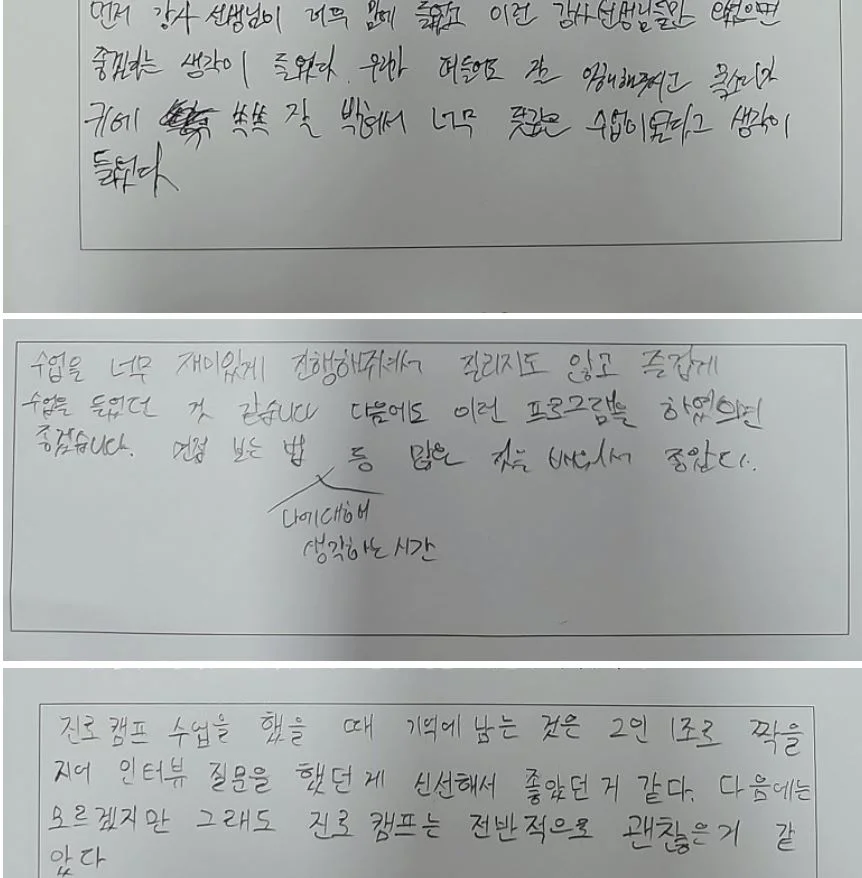 먼저 강사 선생님이 너무 맘에 들었고 이런 강사선생님들만 있었으면
좋겠다는 생각이 들었다. 우리가 떠들어도 잘 이해해주시고 목소리가
귀에 쏙쏙 잘 박혀서 너무 뜻깊은 수업이였다고 생각이
들었다
수업을 너무 재미있게 진행해주셔서 질리지도 않고 즐겁게
수업을 들었던 것 같습니다 다음에도 이런 프로그램을 하였으면
좋겠습니다. 면접 보는 법 등 많은 것을 배워서 좋았다.
나에대해
생각하는 시간
진로캠프 수업을 했을 때 기억에 남는 것은 2인 1조로 짝을
지어 인터뷰 질문을 했던 게 신선해서 좋았던 거 같다. 다음에는
모르겠지만 그래도 진로 캠프는 전반적으로 괜찮은거 같
았다